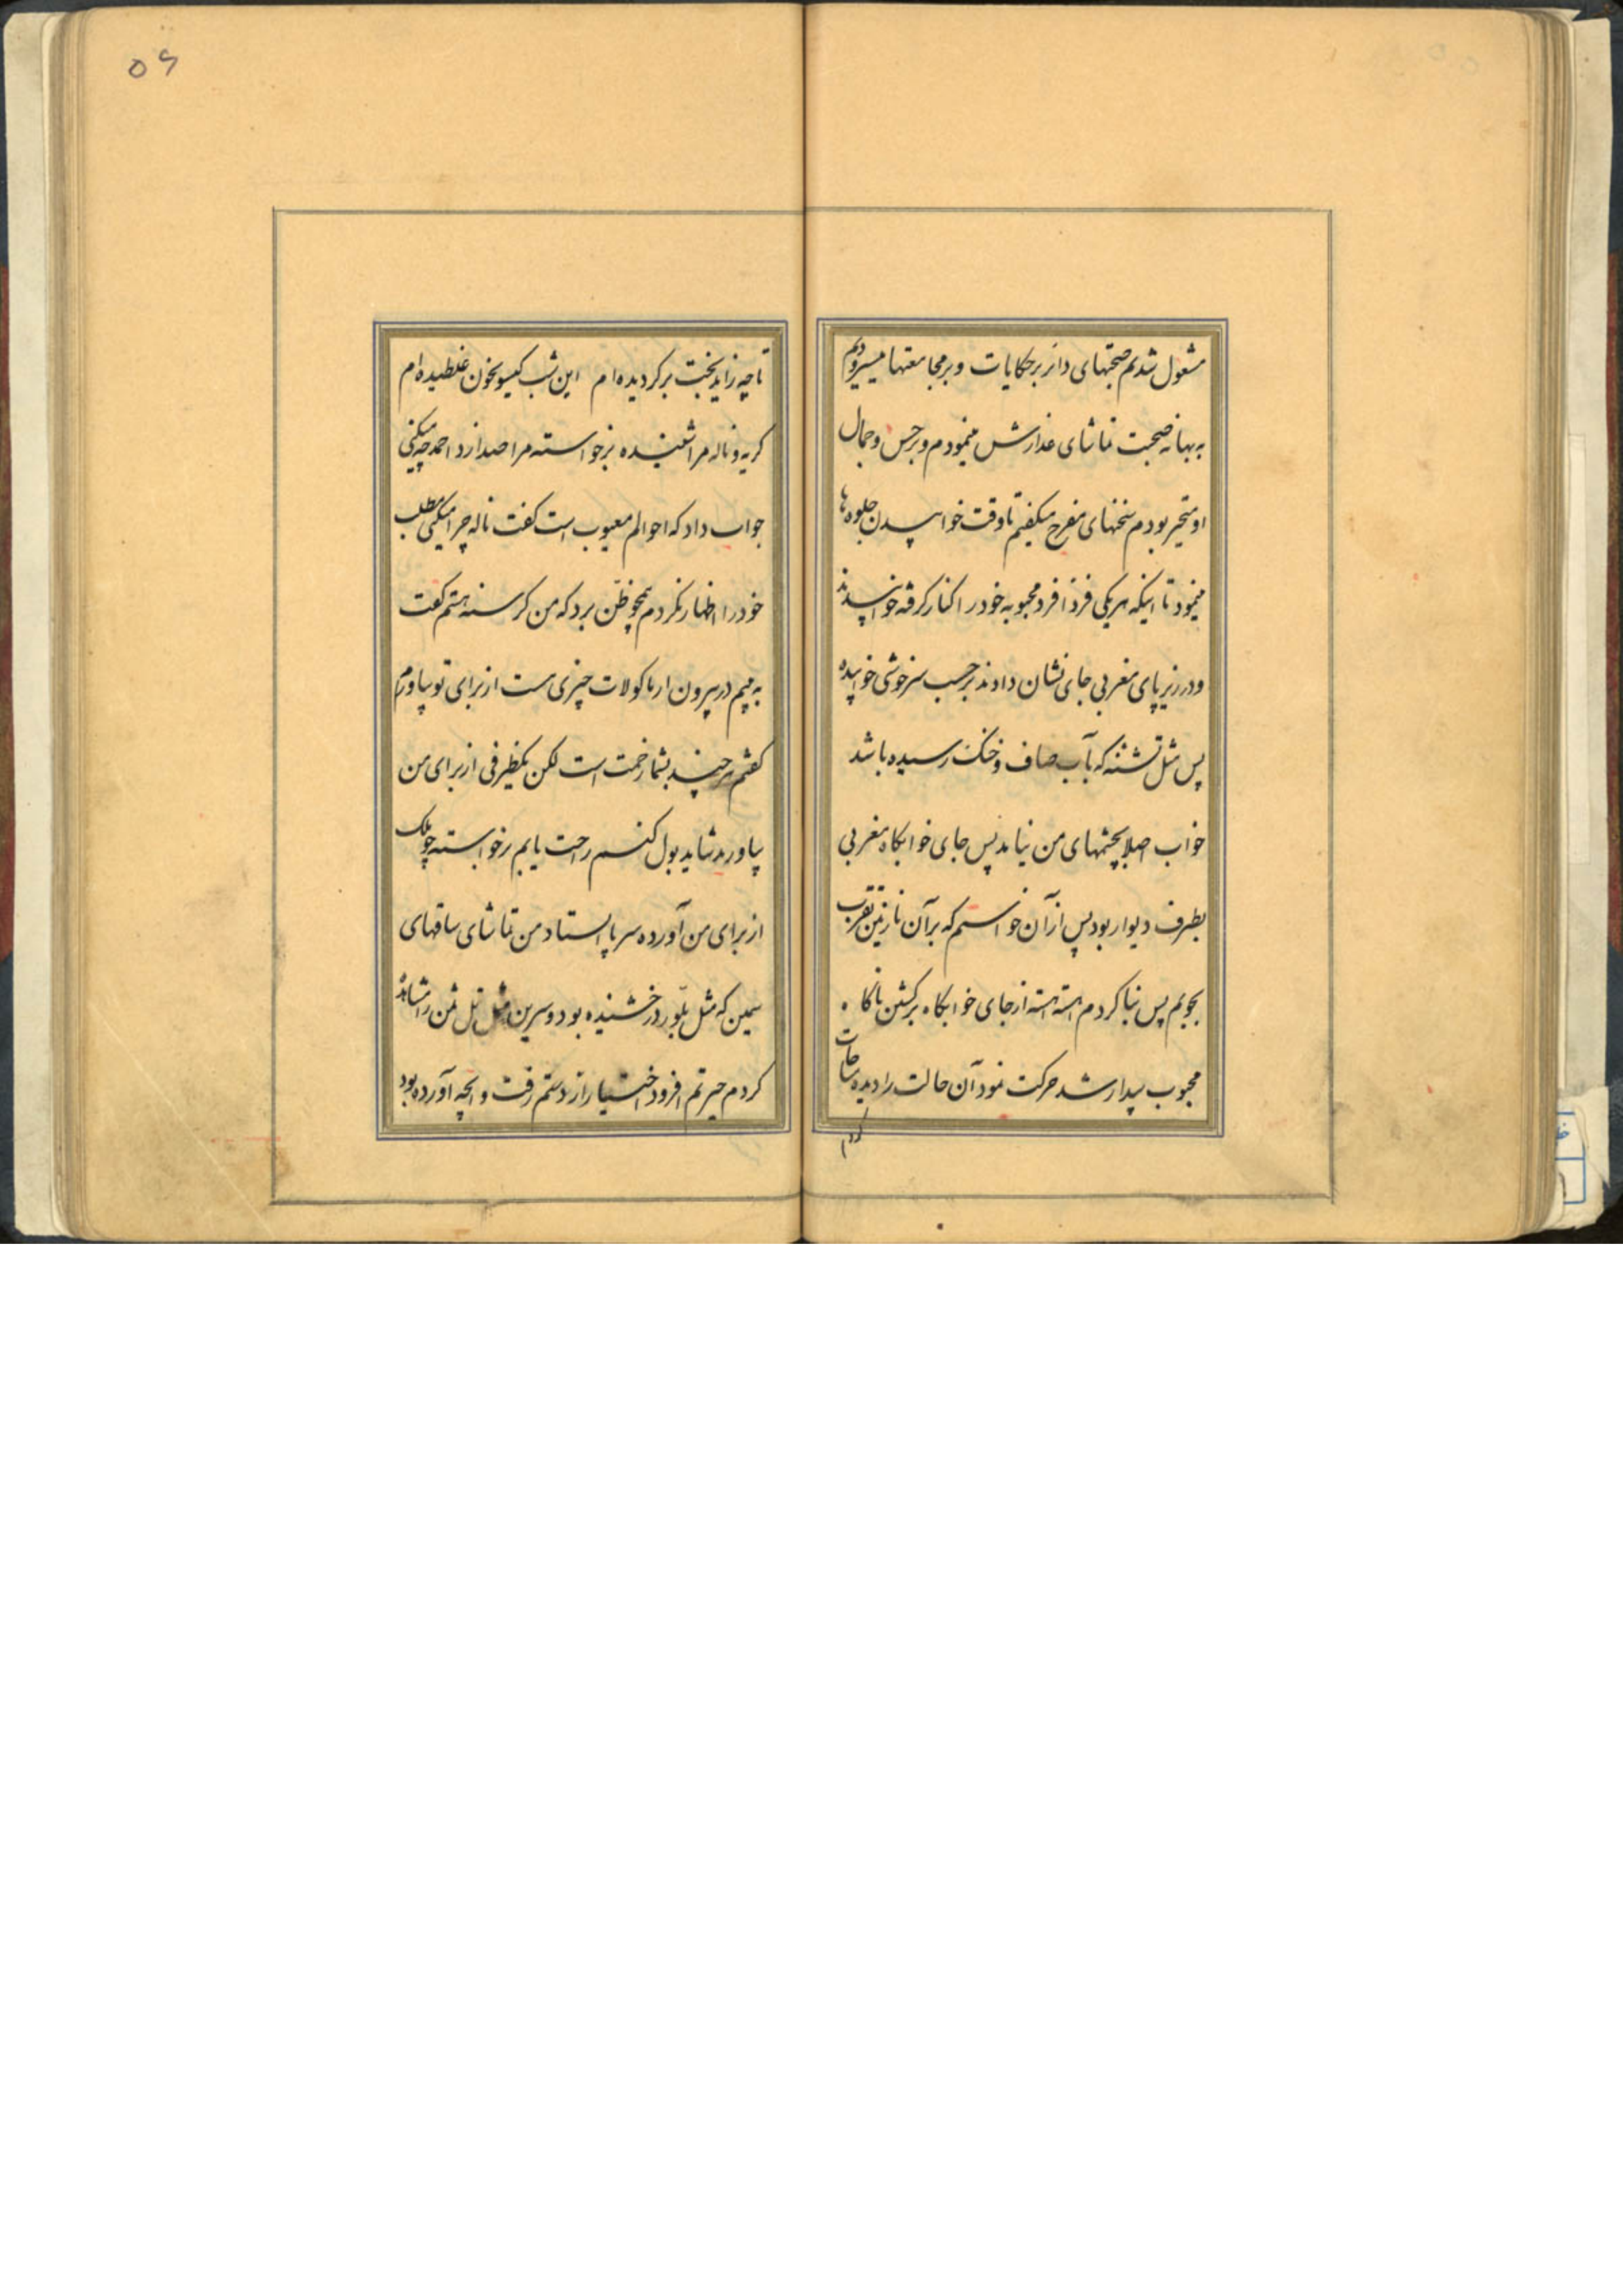 مشغول شدیم صحبتهای دائر بر حکایات و بر مجامعتها میسرودیم
به بهانه صحبت تماشای عذارش مینمودم و بر حسن و جمال
او متحیر بودم سخنهای مفرح میگفتیم تا وقت خوابیدن جلوه‌ها
مینمود تا اینکه هر یکی فردا فرد محبوبه خود را کنار گرفته خوابیدند
و در زیر پای مغربی جای نشان دادند بر حسب سرخوشی خوابیده
پس مثل تشنه که بآب صاف و خنک رسیده باشد
خواب اصلا بچشمهای من نیامد پس جای خوابگاه مغربی
بطرف دیوار بود پس از آن خواستم که بر آن نازنین تقرب
بجویم پس بنا کردم آهسته آهسته از جای خوابگاه برگشتن ناگاه
محبوب بیدار شد حرکت نمود آن حالت را دیده مناجات
کردم
۵۶
تا چه زاید بخت برگردیده‌ام این شب گیسو بخون غلطیده‌ام
گریه و ناله مرا شنیده برخواسته مرا صدا زد احمد چه میکنی
جواب داد که احوالم معیوب است گفت ناله چرا میکنی مطلب
خود را اظهار نکردم همچو ظن برد که من گرسنه هستم گفت
به بینم در بیرون از ماکولات چیزی هست از برای تو بیاورم
گفتم هر چند بشما زحمت است لکن یکظرفی از برای من
بیاورید شاید بول کنم راحت یابم برخواسته چولمک
از برای من آورده سر پا ایستاد من تماشای ساقهای
سیمین که مثل بلور درخشنده بود و سرین مثل تل ثمن را مشاهده
کردم حیرتم افزود اختیار از دستم رفت و آنچه آورده بود